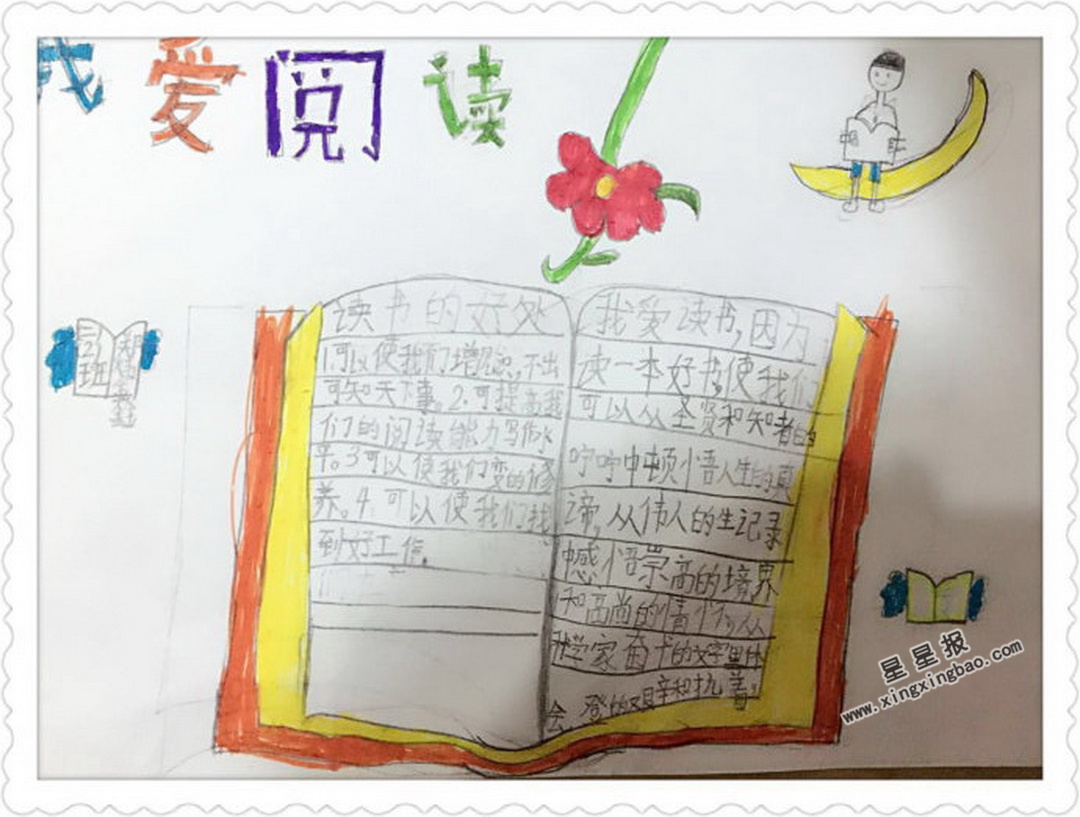 我爱阅读
二(2)班
读书的好处
1.可以使我们增知识,不出
可知天下事。2.可提高我
们的阅读能力写作水
平。3可以使我们变的修
养。4.可以使我们找
到好工作。
我爱读书,因为
读一本好书,使我们
可以从圣贤和知者的
咛咛中顿悟人生的真
谛,从伟人的生记录
憾悟崇高的境界
和高尚的情怀,从
科学家奋斗的文字里体
会登的艰辛和执着。
星星报
www.xingxingbao.com